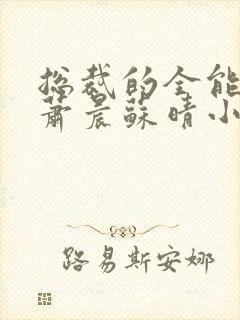 总裁的全能
萧晨苏晴小
路易斯安娜